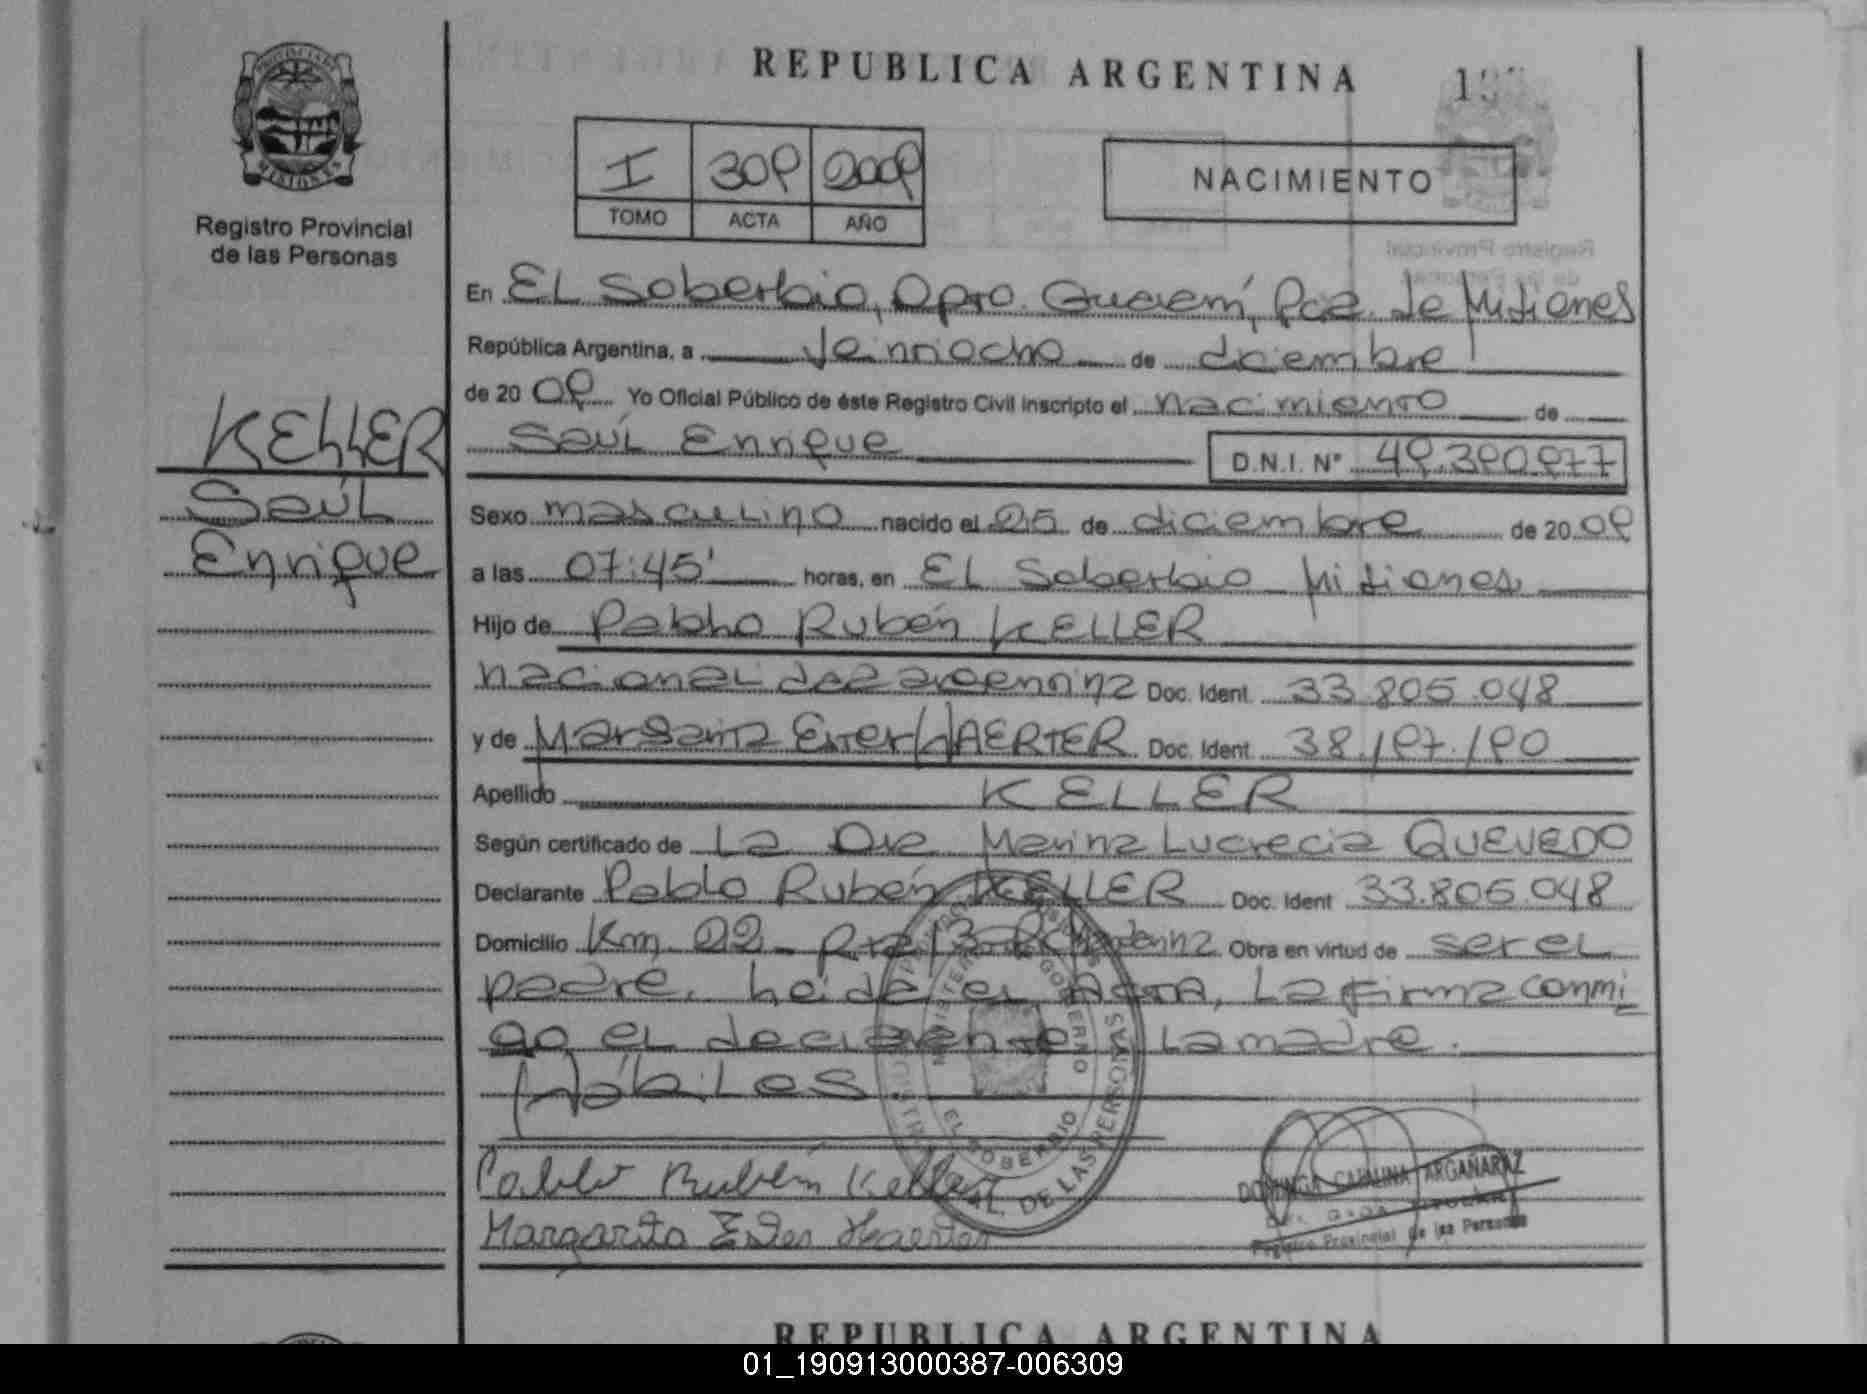 REPUBLICA ARGENTINA
PROVINCIA DE
MISIONES
Registro Provincial
de las Personas
I 309 2009
TOMO ACTA AÑO
NACIMIENTO
En EL Soberbio, Dpto. Guaraní, Pcia. de Misiones
República Argentina, a Veintiocho de diciembre
de 20 09 Yo Oficial Público de éste Registro Civil inscripto el nacimiento de
Saúl Enrique D.N.I. Nº 49.390.977
KELLER
Saúl
Enrique
Sexo masculino nacido el 25 de diciembre de 20 09
a las 07:45' horas, en EL Soberbio Misiones
Hijo de Pablo Rubén KELLER
nacionalidad argentina Doc. Ident. 33.805.048
y de Margarita Ester HAERTER Doc. Ident. 38.197.190
Apellido KELLER
Según certificado de La Dra Marina Lucrecia QUEVEDO
Declarante Pablo Rubén KELLER Doc. Ident 33.805.048
Domicilio Km. 22 - Rta 13 Obra en virtud de ser el
padre. Leída el ACTA, La firma conmi
go el declarante La madre.
Hábiles
EL SOBERBIO
DE LAS PERSONAS
Pablo Rubén Keller
Margarita Ester Haerter
DOMINGA CATALINA ARGAÑARAZ
Registro Provincial de las Personas
REPUBLICA ARGENTINA
01_190913000387-006309